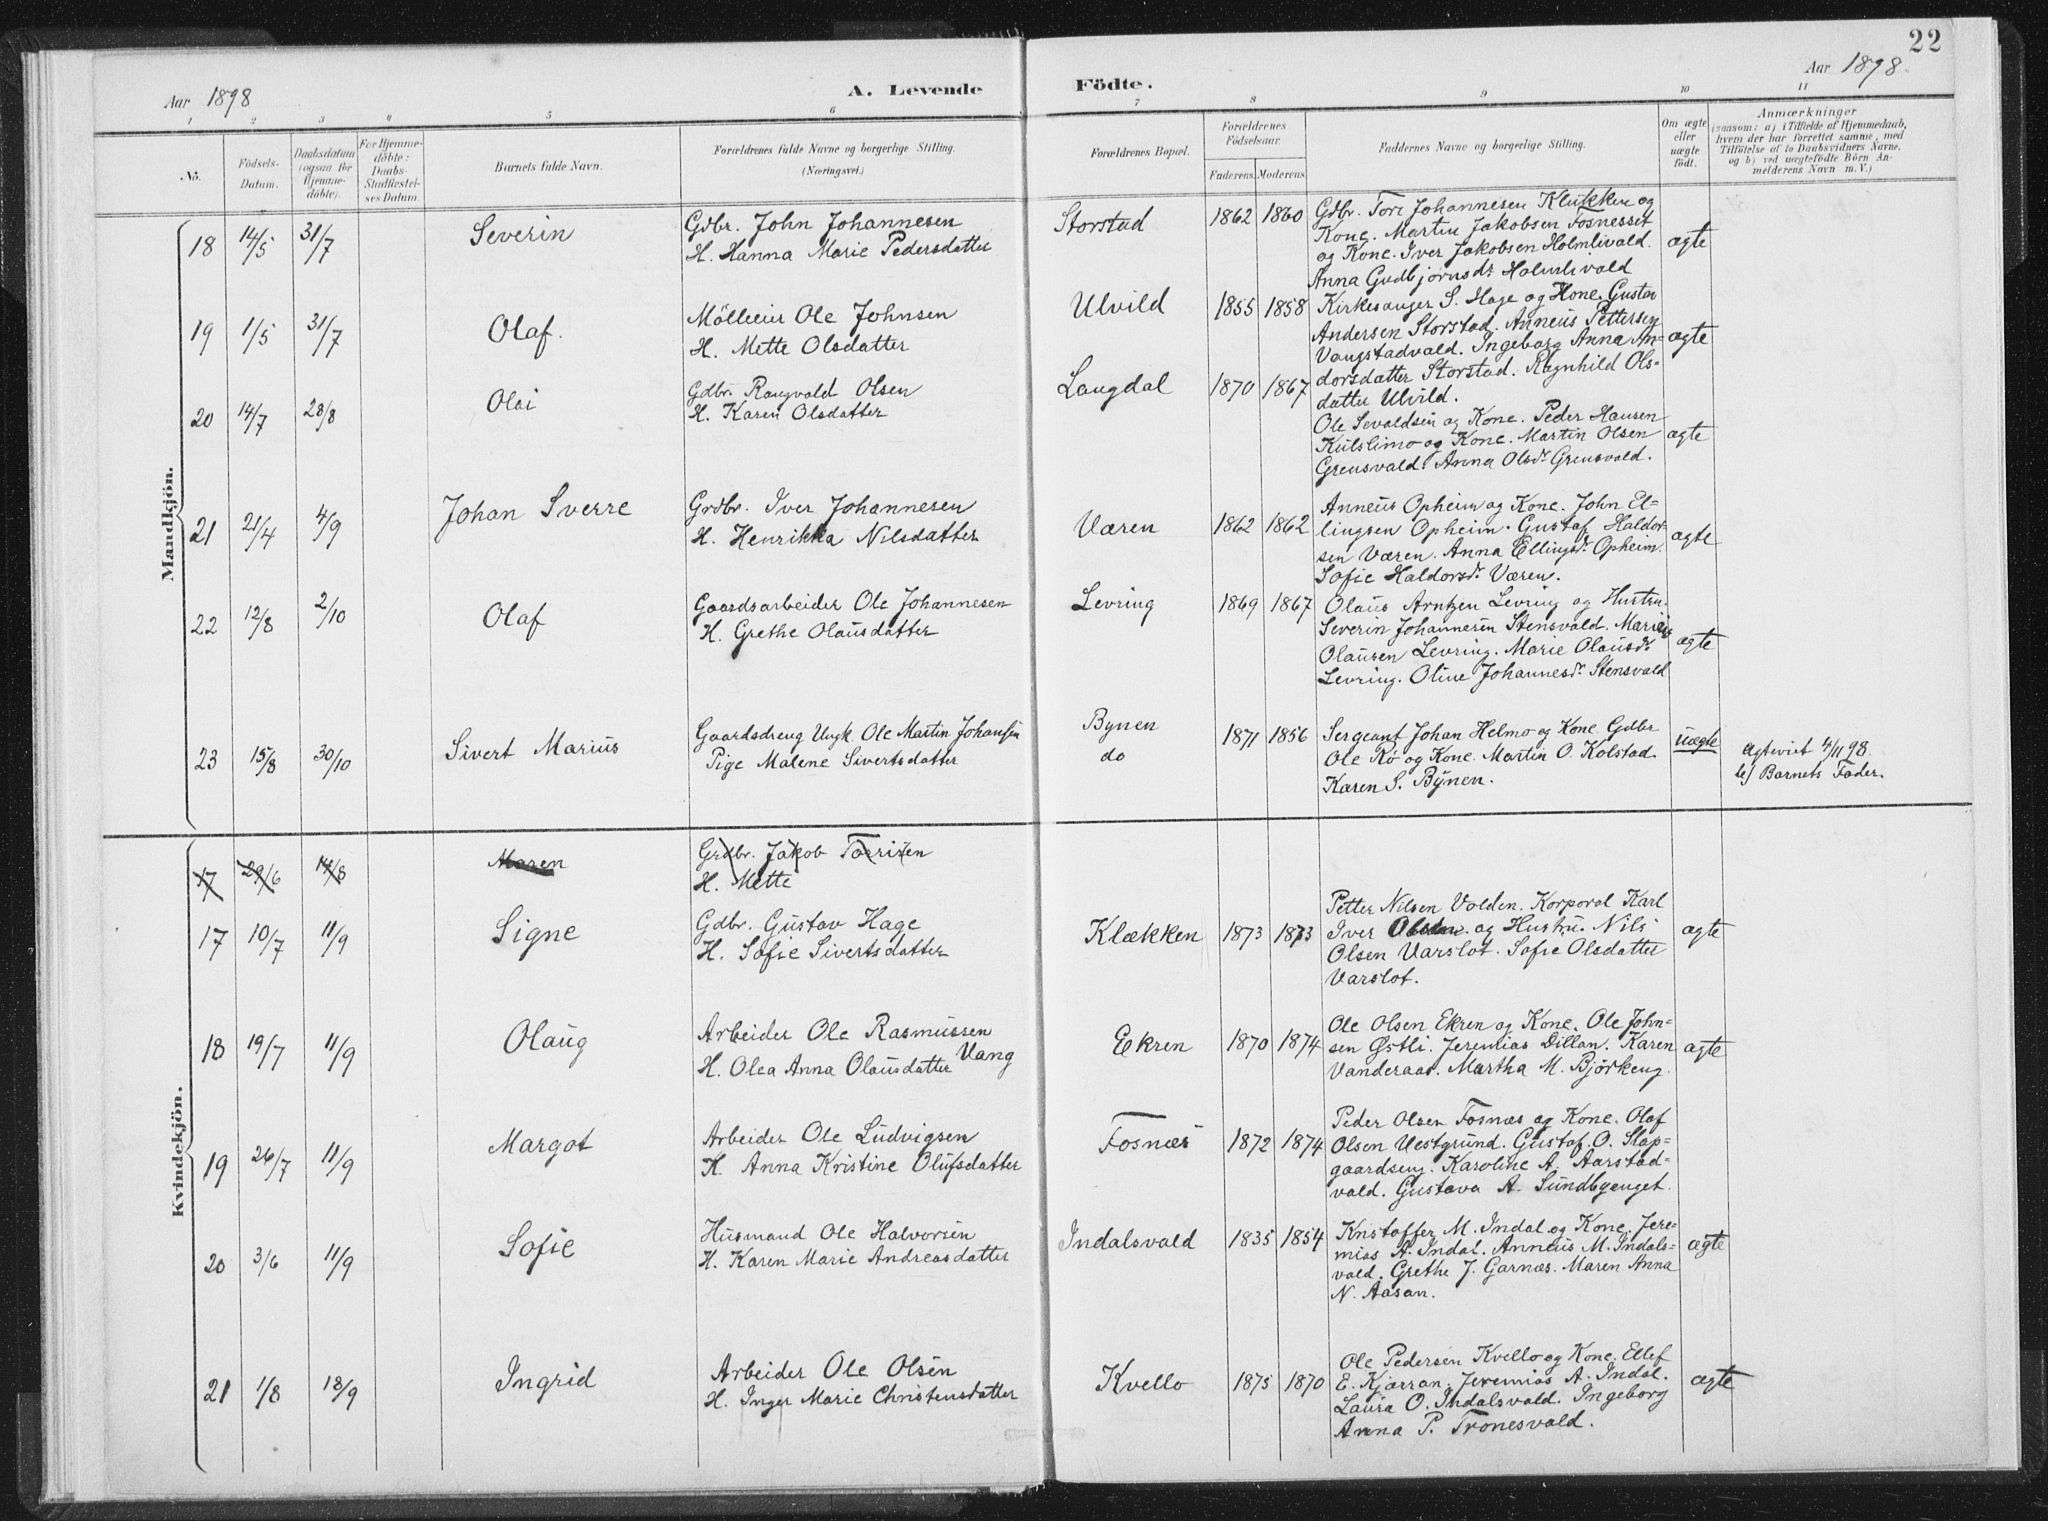 22
Aar 1898
A. Levende
Födte.
Aar 1898.
1 2 3 4 5 6 7 8 9 10 11
No.
Födsels-Datum.
Daabsdatum (ogsaa for Hjemme-döbte).
For Hjemme-döbte: Daabs-Stadfæstel-ses Datum.
Barnets fulde Navn.
Forældrenes fulde Navne og borgerlige Stilling.
(Næringsvei.)
Forældrenes Bopæl.
Forældrenes Födselsaar.
Faderens. Moderens.
Faddernes Navne og borgerlige Stilling.
Om ægte eller uægte födt.
Anmærkninger
(saasom: a) i Tilfælde af Hjemmedaab,
hvem der har forrettet samme, med
Tilföielse af to Daabsvidners Navne,
og b) ved uægtefödte Börn An-
melderens Navn m. V.)
Mandkjön.
18 14/5 31/7 Severin
Gdbr. John Johannesen
H. Hanna Marie Pedersdatter
Storstad 1862 1860
Gdbr. Tore Johannesen Klukken og
Kone. Martin Jakobsen Fosnesset
og Kone. Iver Jakobsen Holmlivald.
Anna Gudbjørnsdr Holmlivald
ægte
19 1/5 31/7 Olaf.
Möllieier Ole Johnsen
H. Mette Olsdatter
Ulvild 1855 1858
Kirkesanger S. Hage og Kone. Gustav
Andersen Storstad. Anneus Pettersen
Vangstadvald. Ingeborg Anna An-
dorsdatter Storstad. Ragnhild Ols-
datter Ulvild.
ægte
20 14/7 28/8 Olai
Gdbr. Rangvald Olsen
H. Karen Olsdatter
Langdal 1870 1867
Ole Sevaldsen og Kone. Peder Hansen
Kulslimo og Kone. Martin Olsen
Grensvald. Anna Olsdr Grensvald.
ægte
21 21/4 4/9 Johan Sverre
Grdbr. Iver Johannesen
H. Henrikka Nilsdatter
Væren 1862 1862
Anneus Opheim og Kone. John El-
lingsen Opheim. Gustaf Haldor-
sen Væren. Anna Ellingsdr. Opheim.
Sofie Haldorsdr. Væren.
ægte
22 12/8 2/10 Olaf
Gaardsarbeider Ole Johannesen
H. Grethe Olausdatter
Levring 1869 1867
Olaus Arntzen Levring og Hustru.
Severin Johannesen Stensvald. Marius
Olausen Levring. Marie Olausdr
Levring. Oline Johannesdr. Stensvald
ægte
23 15/8 30/10 Sivert Marius
Gaardsdreng Ungk. Ole Martin Johansen
Pige Malene Sivertsdatter
Bynen
do
1871 1856
Sergeant Johan Helmo og Kone Gdbr
Ole Rö og Kone. Martin O. Kolstad
Karen S. Bynen.
uægte
Agteviet 4/11 98.
m/ Barnets Fader.
Kvindekjön.
17 29/6 14/8 Maren
Grdbr. Jakob Torrisen
H. Mette
17 10/7 11/9 Signe
Gdbr. Gustav Hage
H. Sofie Sivertsdatter
Klækken 1873 1873
Petter Nilsen Volden. Korporal Karl
Iver og Hustru. Nils
Olsen Varslot. Sofie Olsdatter
Varslot.
ægte
18 19/7 11/9 Olaug
Arbeider Ole Rasmussen
H. Olea Anna Olausdatter Vang
Ekren 1870 1874
Ole Olsen Ekren og Kone. Ole John-
sen Østli. Jeremias Dillan. Karen
Vanderaas. Martha M. Björkeng.
ægte
19 26/7 11/9 Margot
Arbeider Ole Ludvigsen
H. Anna Kristine Olufsdatter
Fosnæs 1872 1874
Peder Olsen Fosnæs og Kone. Olaf
Olsen Vestgrund. Gustaf O. Slap-
gaardseng. Karoline A. Aarstad-
vald. Gustava A. Sundbyenget.
ægte
20 3/6 11/9 Sofie
Husmand Ole Halvorsen
H. Karen Marie Andreasdatter
Indalsvald 1835 1854
Kristoffer M. Indal og Kone. Jere-
mias A. Indal. Anneus M. Indals-
vald. Grethe J. Garnæs. Maren Anna
N. Aasan.
ægte
21 1/8 18/9 Ingrid
Arbeider Ole Olsen
H. Inger Marie Christensdatter
Kvello 1875 1870
Ole Pedersen Kvello og Kone. Ellef
E. Kjærran. Jeremias A. Indal.
Laura O. Indalsvald. Ingeborg
Anna P. Tronesvald.
ægte